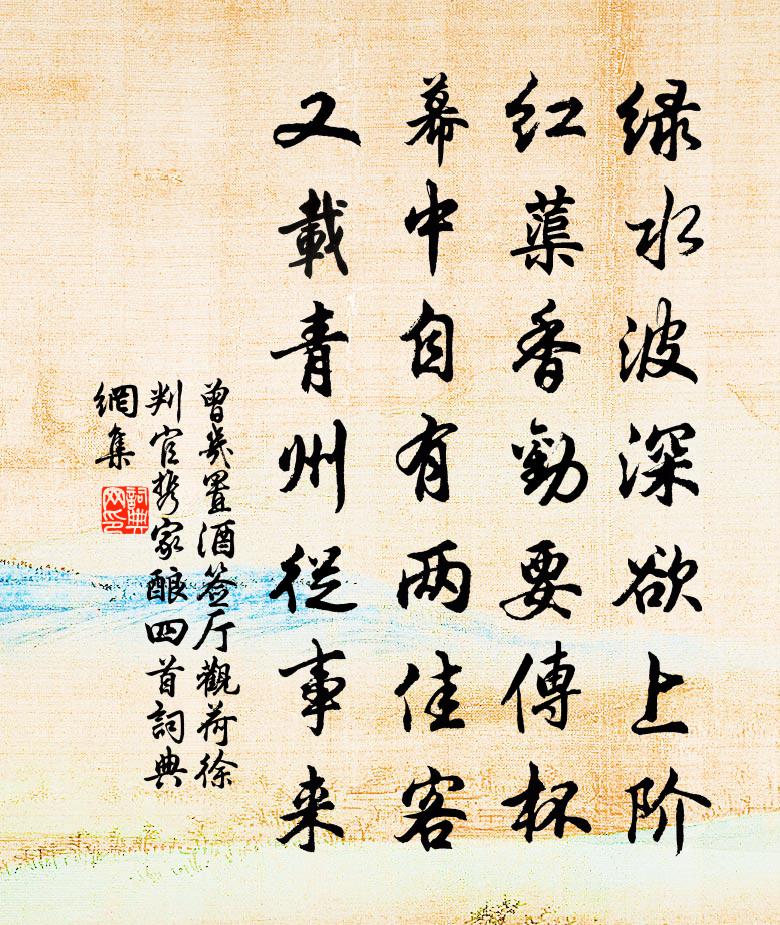 绿水波深欲上阶
红蕖香勤要傳杯
幕中自有两佳客
又載青州從事来
曾幾置酒签厅觀荷徐
判官携家酿四首詞典
網集
詞典
网印